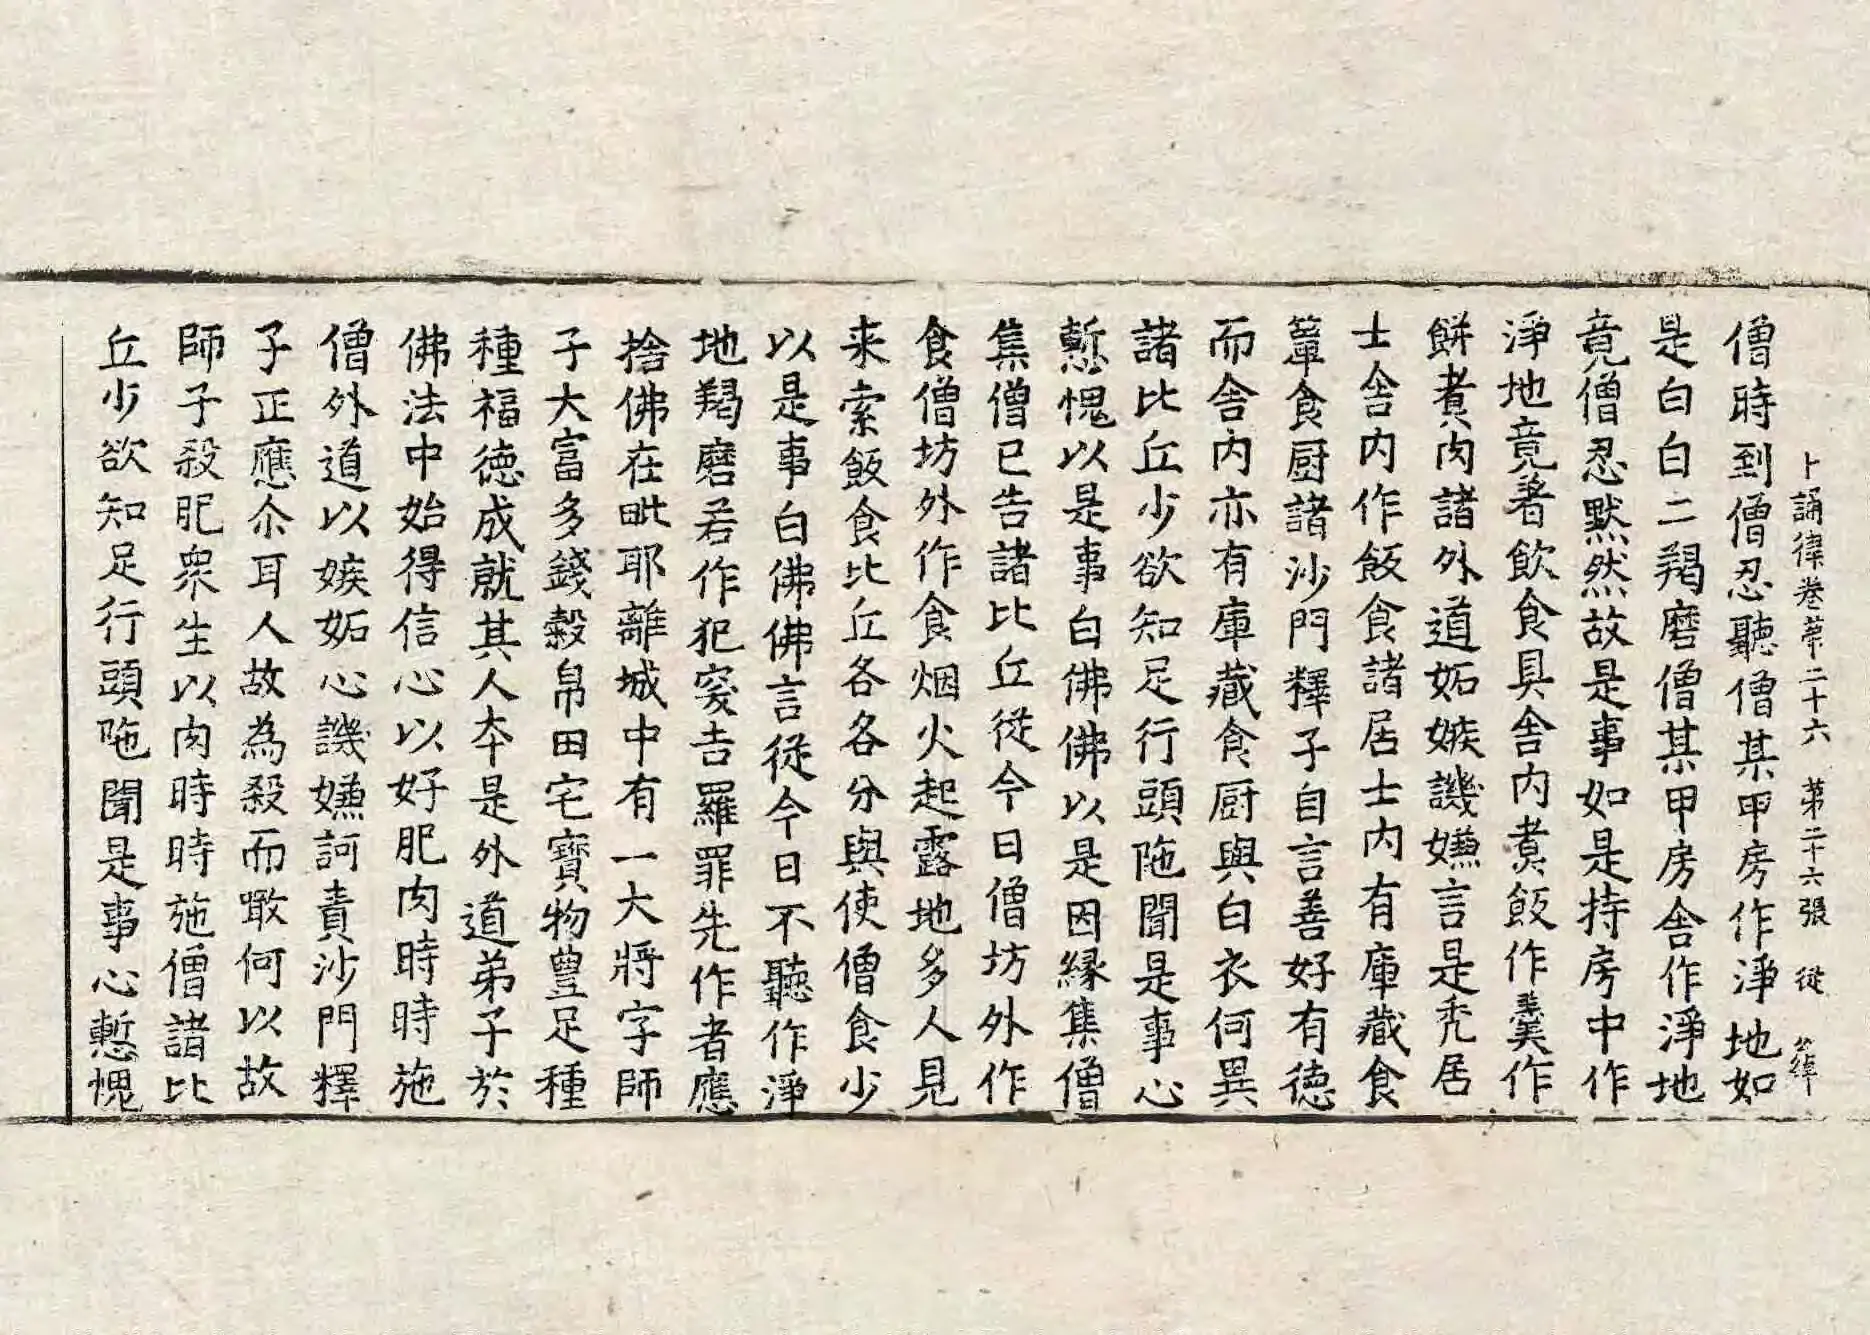 十誦律卷第二十六 第二十六張 從
僧時到僧忍聽僧某甲房作淨地如
是白白二羯磨僧某甲房舍作淨地
竟僧忍默然故是事如是持房中作
淨地竟著飲食具舍內煑飯作羹作
餅煑肉諸外道妬嫉譏嫌言是禿居
士舍內作飯食諸居士內有庫藏食
簞食厨諸沙門釋子自言善好有德
而舍內亦有庫藏食厨與白衣何異
諸比丘少欲知足行頭陁聞是事心
慙愧以是事白佛佛以是因緣集僧
集僧已告諸比丘從今日僧坊外作
食僧坊外作食烟火起露地多人見
来索飯食比丘各各分與使僧食少
以是事白佛佛言從今日不聽作淨
地羯磨若作犯突吉羅罪先作者應
捨佛在毗耶離城中有一大將字師
子大富多錢穀帛田宅寶物豊足種
種福德成就其人本是外道弟子於
佛法中始得信心以好肥肉時時施
僧外道以嫉妬心譏嫌訶責沙門釋
子正應尒耳人故為殺而噉何以故
師子殺肥衆生以肉時時施僧諸比
丘少欲知足行頭陁聞是事心慙愧